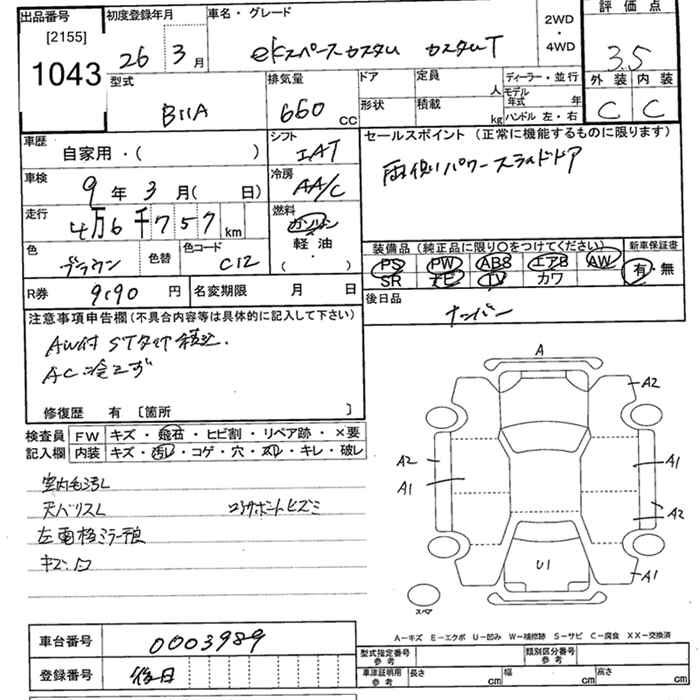 出品番号 初度登録年月 車名・グレード 2WD・4WD 評価点
[2155]
1043 26 3月 ekスペースカスタム カスタムT 3.5
型式 排気量 ドア 定員 人 ディーラー・並行 外装 内装
形状 積載 kg モデル年式 年
B11A 660 CC ハンドル 左・右 C C
車歴 シフト セールスポイント (正常に機能するものに限ります)
自家用・( ) IAT 両側パワースライドドア
車検 9年3月( 日) 冷房 AA/C
走行 4万6千757km 燃料 ガソリン
軽油
・
( )
色 ブラウン 色替 色コード C12
装備品(純正品に限り○をつけてください) 新車保証書
PS PW ABS エアB AW 有・無
SR ナビ TV カワ
R券 9190円 名変期限 月 日 後日品
ナンバー
注意事項申告欄(不具合内容等は具体的に記入して下さい)
AC冷えず
修復歴 有 [箇所 ]
検査員 FW キズ・飛石・ヒビ割・リペア跡・×要
記入欄 内装 キズ・汚レ・コゲ・穴・スレ・キレ・破レ
室内毛汚レ
天バリスレ コアサポートヒズミ
左電格ミラー
A
A2
A2 A1
A1
A2
U1 A1
スペア
A－キズ E－エクボ U－凹み W－補修跡 S－サビ C－腐食 XX－交換済
車台番号 0003989 型式指定番号 参考 類別区分番号 参考
登録番号 後日 車庫証明用 参考 長さ cm 幅 cm 高さ cm